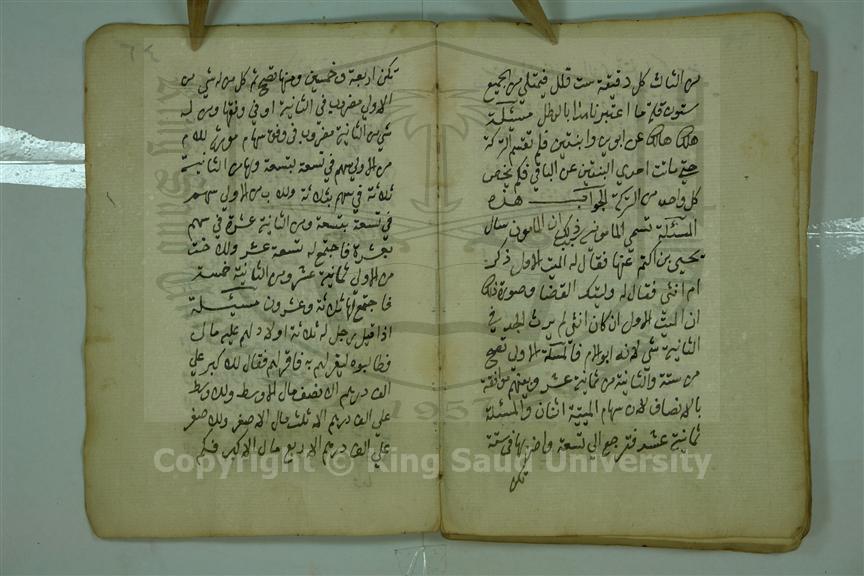 من الثاك كل دقيقة ست قلل فيمتلي من الجميع
ستون قلة ما اعتبرنا هذا بالرطل مسئلة
هلك هالك عن ابوين وابنتين فلم تقسم التركة
حتي ماتت احدي البنتين عن الباقي فلم يخص
كل واحد من التركة الجواب هذه
المسئلة تسمي المامونية وذلك ان المامون سال
يحيي بن اكثم عنها فقال له الميت الاول ذكر
ام انثي فقال له وليتك القضا وصورة ذلك
ان الميت الاول ان كان انثي لم يرث الجد في
الثانية شي لانه ابو الام فالمسئلة الاولي تصح
من ستة والثانية من ثمانية عشر وبينهم موافقة
بالانصاف لان سهام الميتة اثنان والمسئلة
ثمانية عشر فترجع الي تسعة واضربها في ستة
تكن
تكن اربعة وخمسين ومنها تصح ثم كل من له شي من
الاولي مضروب في الثانية او في وفقها ومن له
شي من الثانية مضروب في وفق سهام مورثه للام
من الاولي سهم في تسعة بتسعة ولها من الثانية
ثلاثة في سهم بثلاثة وللاب من الاولي سهم
في تسعة بتسعة ومن الثانية عشرة في سهم
بعشرة فاجتمع له تسعة عشر وللاخت
من الاولي ثمانية عشر ومن الثانية خمسة
فاجتمع لها ثلاثة وعشرون مسئلة
اذا قيل رجل له ثلاثة اولاد لهم عليه مال
وطالبوه ليقر لهم به فاقر لهم فقال للاكبر علي
الف درهم الا نصف مال الاوسط وللاوسط
علي الف درهم الا ثلث مال الاصغر وللاصغر
علي الف درهم الا ربع مال الاكبر فكم
1957
Copyright © King Saud University